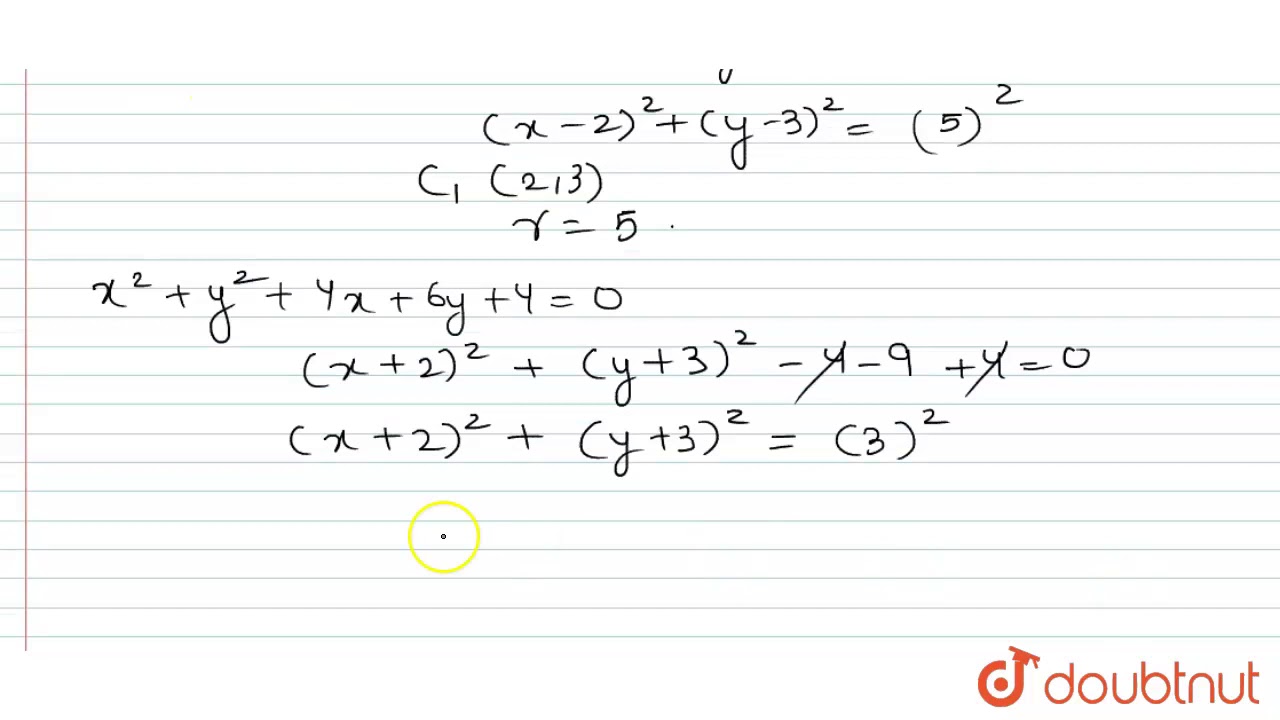 (x-2)² + (y-3)² = (5)²
C₁ (2,3)
r = 5 .
x² + y² + 4x + 6y + 4 = 0
(x+2)² + (y+3)² - 4 - 9 + 4 = 0
(x+2)² + (y+3)² = (3)²
doubtnut